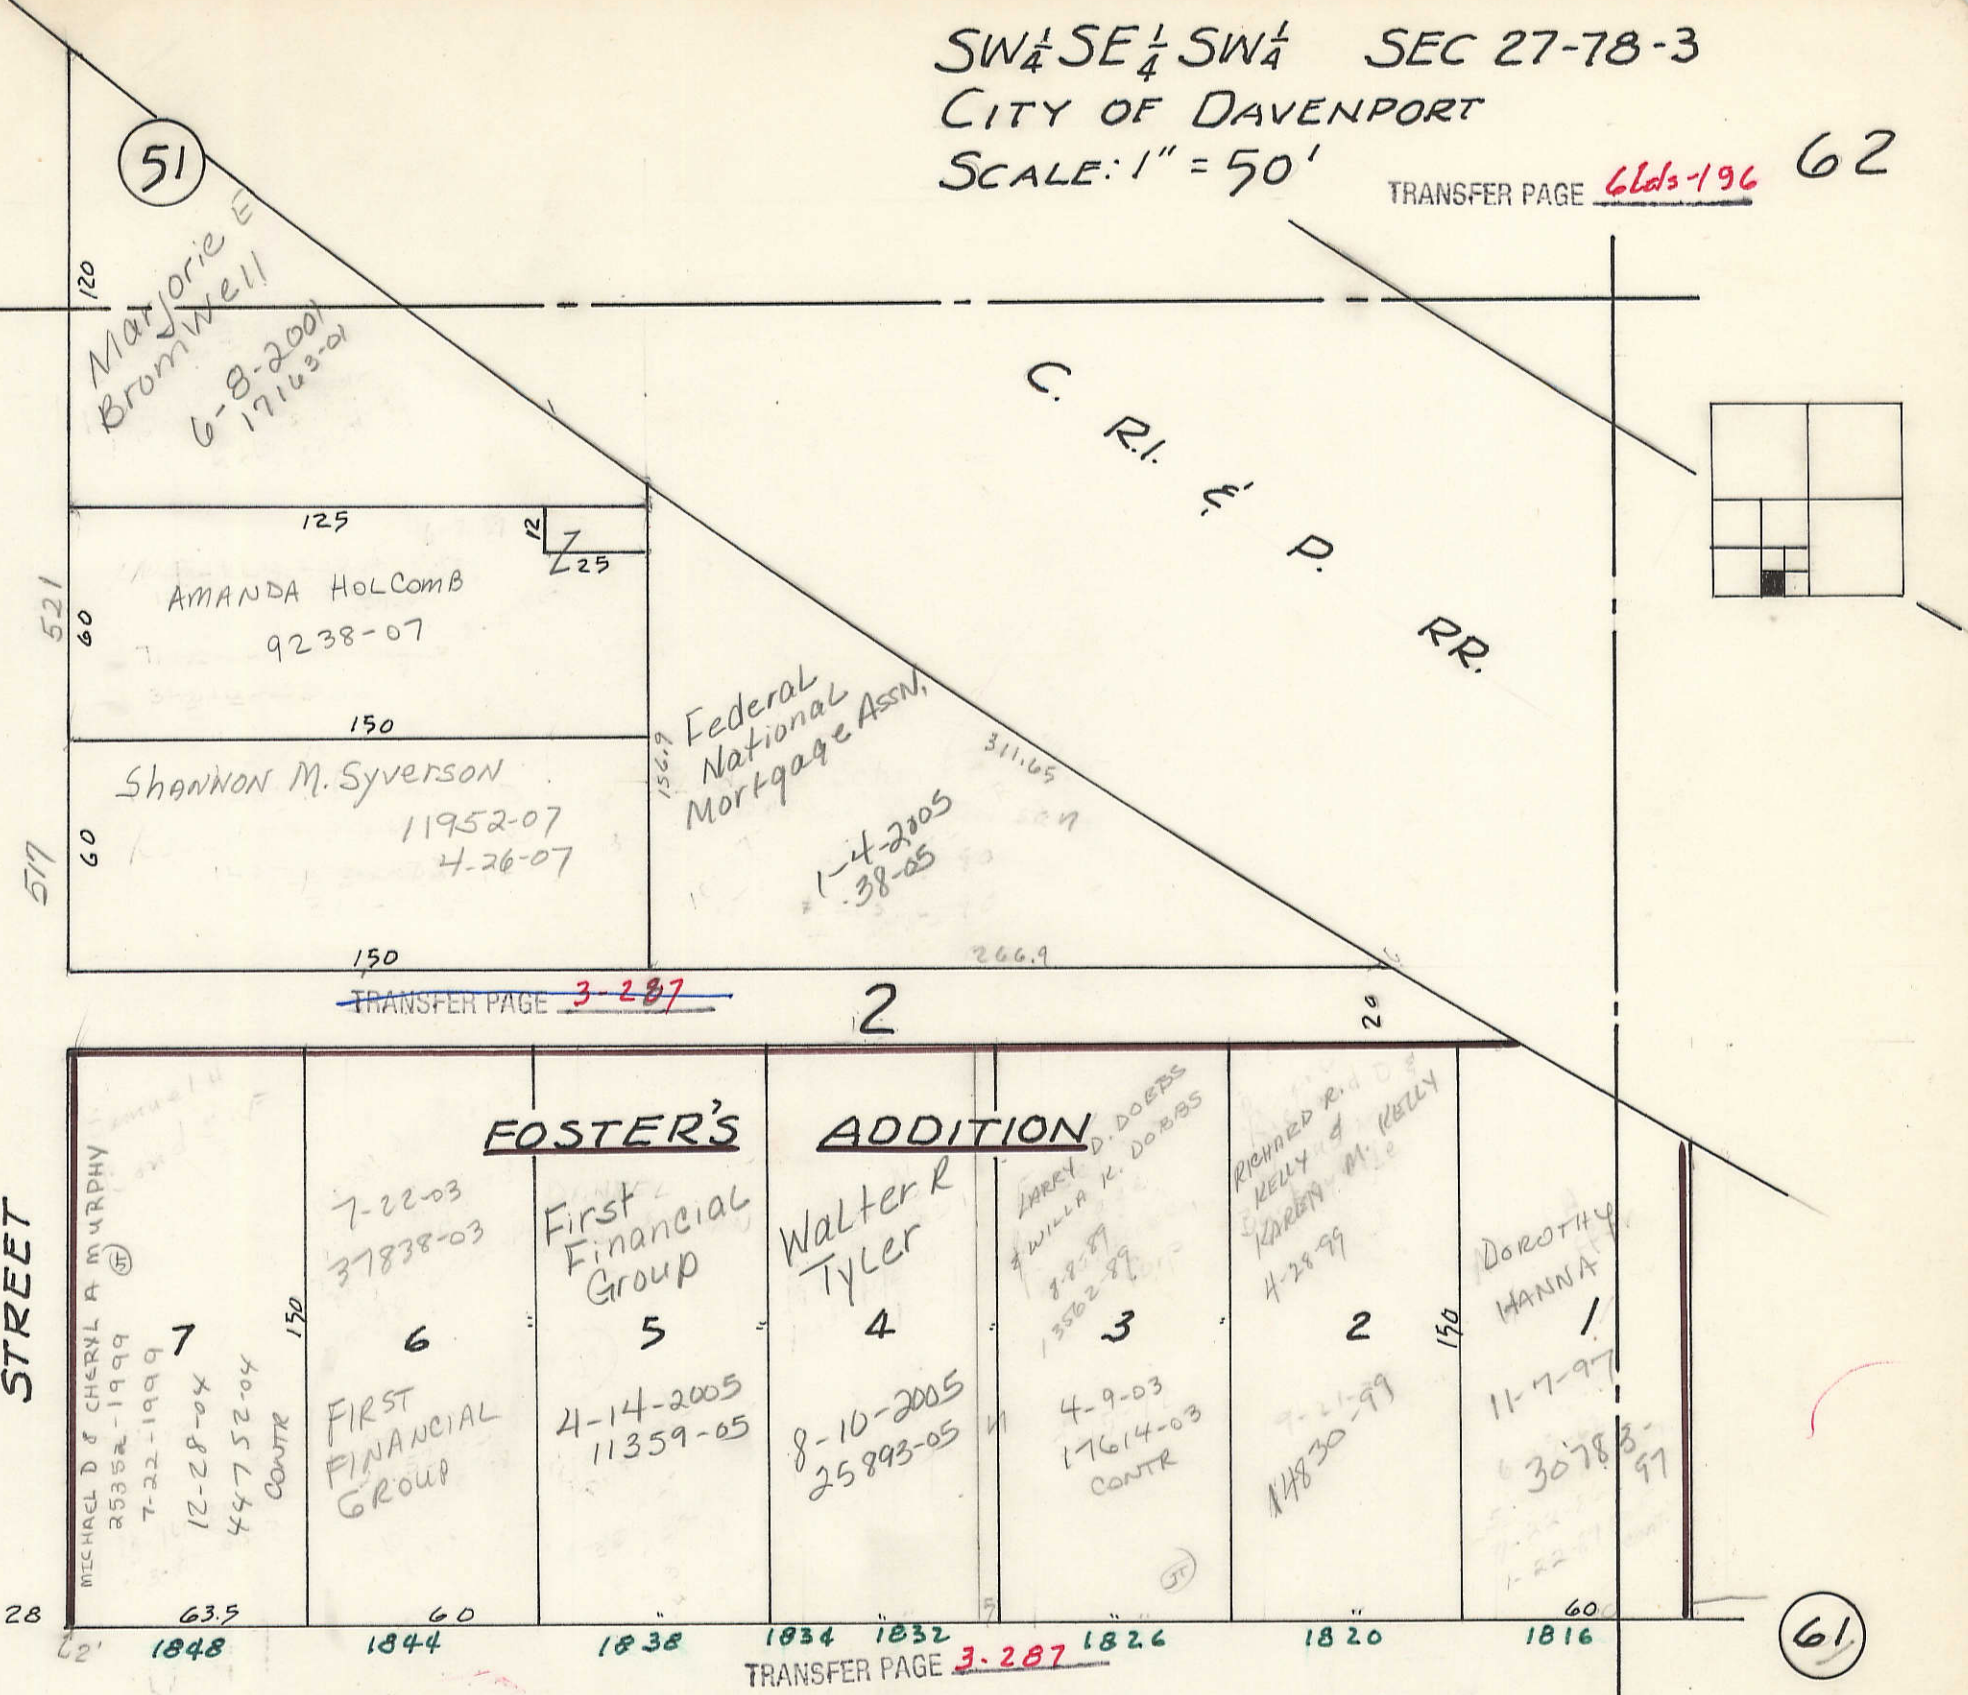 SW¼ SE¼ SW¼ SEC 27-78-3
CITY OF DAVENPORT
SCALE: 1" = 50'
62
TRANSFER PAGE
51
120
Marjorie E
Bromwell
6-8-2001
17163-01
C. R.I. & P. RR.
125
12
25
AMANDA HOLCOMB
9238-07
521
60
150
SHANNON M. SYVERSON
11952-07
4-26-07
517
60
150
156.9
Federal
National
Mortgage Assn.
1-4-2005
38-05
311.65
266.9
TRANSFER PAGE 3-287
2
20
FOSTER'S ADDITION
STREET
MICHAEL D & CHERYL A MURPHY
JT
25352-1999
7-22-1999
7
12-28-04
44752-04
CONTR
150
7-22-03
37838-03
6
FIRST
FINANCIAL
GROUP
First
Financial
Group
5
4-14-2005
11359-05
Walter R
Tyler
4
8-10-2005
25893-05
LARRY D. DOBBS
& WILLA K. DOBBS
8-8-89
13562-89
3
4-9-03
17614-03
CONTR
JT
RICHARD R.
KELLY &
KAREN M. KELLY
4-28-99
2
14830-99
150
DOROTHY
HANNA
1
11-7-97
30783-
97
28
63.5
60
"
"
"
"
60
2'
1848
1844
1838
1834
1832
1826
1820
1816
TRANSFER PAGE 3-287
61